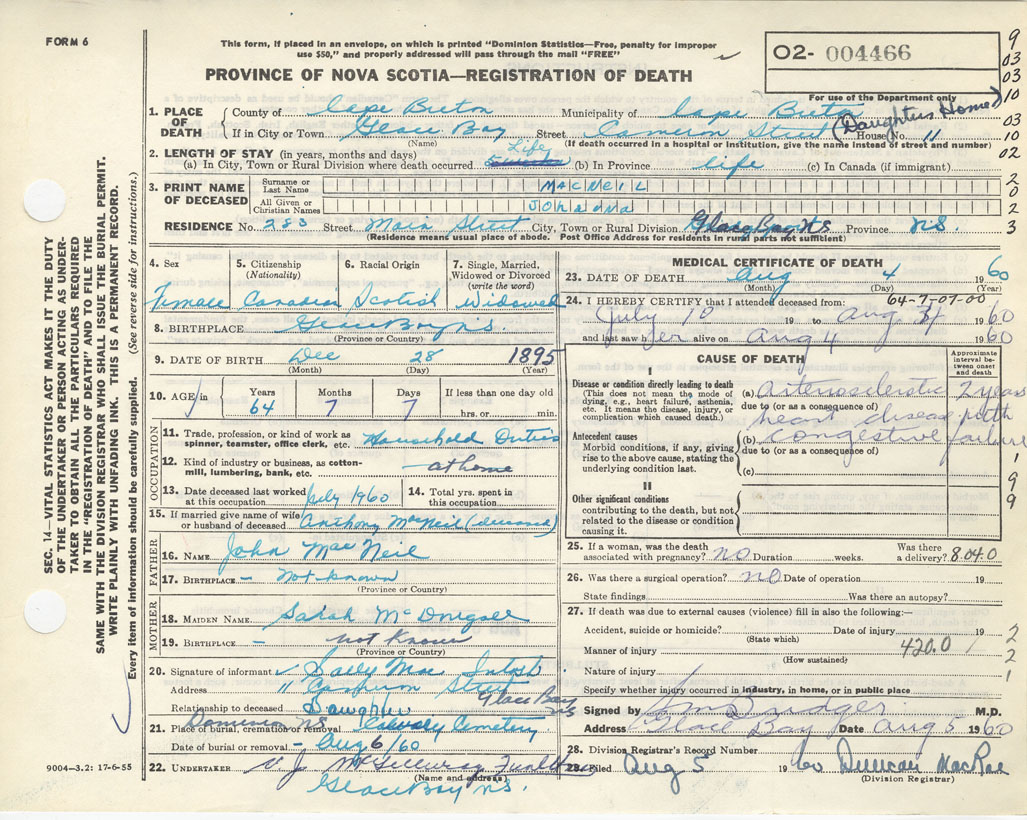 FORM 6
This form, if placed in an envelope, on which is printed "Dominion Statistics—Free, penalty for improper
use $50," and properly addressed will pass through the mail "FREE"
O2- 004466
For use of the Department only
PROVINCE OF NOVA SCOTIA—REGISTRATION OF DEATH
9
03
03
10
03
10
02
2
0
2
3
1. PLACE OF DEATH
County of Cape Breton Municipality of Cape Breton (Daughters Home)
If in City or Town Glace Bay Street Cameron Street House No. 11
(Name) (If death occurred in a hospital or institution, give the name instead of street and number)
2. LENGTH OF STAY (in years, months and days)
(a) In City, Town or Rural Division where death occurred Life (b) In Province life (c) In Canada (if immigrant)
3. PRINT NAME OF DECEASED
Surname or Last Name MACNEIL
All Given or Christian Names JOhanna
RESIDENCE No. 283 Street Main Street City, Town or Rural Division Glace Bay NS Province NS.
(Residence means usual place of abode. Post Office Address for residents in rural parts not sufficient)
4. Sex Female
5. Citizenship (Nationality) Canadian
6. Racial Origin Scotish
7. Single, Married, Widowed or Divorced (write the word) Widowed
8. BIRTHPLACE Glace Bay NS.
(Province or Country)
9. DATE OF BIRTH Dec 28 1895
(Month) (Day) (Year)
10. AGE in Years Months Days If less than one day
64 7 7 hrs. or min.
OCCUPATION
11. Trade, profession, or kind of work as spinner, teamster, office clerk, etc. Household Duties
12. Kind of industry or business, as cotton-mill, lumbering, bank, etc. at home
13. Date deceased last worked at this occupation July 1960
14. Total yrs. spent in this occupation
15. If married give name of wife or husband of deceased Anthony MacNeil (deceased)
FATHER
16. NAME John MacNeil
17. BIRTHPLACE – Not known
(Province or Country)
MOTHER
18. MAIDEN NAME Sarah McDougall
19. BIRTHPLACE – not Known
(Province or Country)
20. Signature of informant Sally MacIntosh
Address 11 Cameron Street Glace Bay NS
Relationship to deceased Daughter
21. Place of burial, cremation or removal Dominion NS Calvary Cemetery
Date of burial or removal – Aug 6/60
22. UNDERTAKER V. J. McGillivray
(Name and address)
Glace Bay NS.
MEDICAL CERTIFICATE OF DEATH
23. DATE OF DEATH Aug 4 1960
(Month) (Day) (Year)
24. I HEREBY CERTIFY that I attended deceased from: 64-7-07-00
July 19 to Aug 4 1960
and last saw her alive on Aug 4 1960
CAUSE OF DEATH
Approximate interval between onset and death
I
Disease or condition directly leading to death
(This does not mean the mode of dying, e.g., heart failure, asthenia, etc. It means the disease, injury, or complication which caused death.)
(a) Arteriosclerotic 2 years
due to (or as a consequence of)
heart disease with
Antecedent causes
Morbid conditions, if any, giving rise to the above cause, stating the underlying condition last.
(b) congestive failure
due to (or as a consequence of)
(c)
1
9
9
II
Other significant conditions
contributing to the death, but not related to the disease or condition causing it.
25. If a woman, was the death associated with pregnancy? no Duration weeks. Was there a delivery? 8.04.0
26. Was there a surgical operation? no Date of operation 19
State findings Was there an autopsy?
27. If death was due to external causes (violence) fill in also the following:—
Accident, suicide or homicide? Date of injury 19
(State which)
Manner of injury 420.0
(How sustained)
Nature of injury
Specify whether injury occurred in industry, in home, or in public place
2
2
1
Signed by M.D.
Address Glace Bay Date Aug 5 1960
28. Division Registrar's Record Number
29. Filed Aug 5 1960 Duncan MacRae
(Division Registrar)
SEC. 14—VITAL STATISTICS ACT MAKES IT THE DUTY
OF THE UNDERTAKER OR PERSON ACTING AS UNDER-
TAKER TO OBTAIN ALL THE PARTICULARS REQUIRED
IN THE "REGISTRATION OF DEATH" AND TO FILE THE
SAME WITH THE DIVISION REGISTRAR WHO SHALL ISSUE THE BURIAL PERMIT.
WRITE PLAINLY WITH UNFADING INK. THIS IS A PERMANENT RECORD.
Every item of information should be carefully supplied. (See reverse side for instructions.)
9004-3.2: 17-6-55